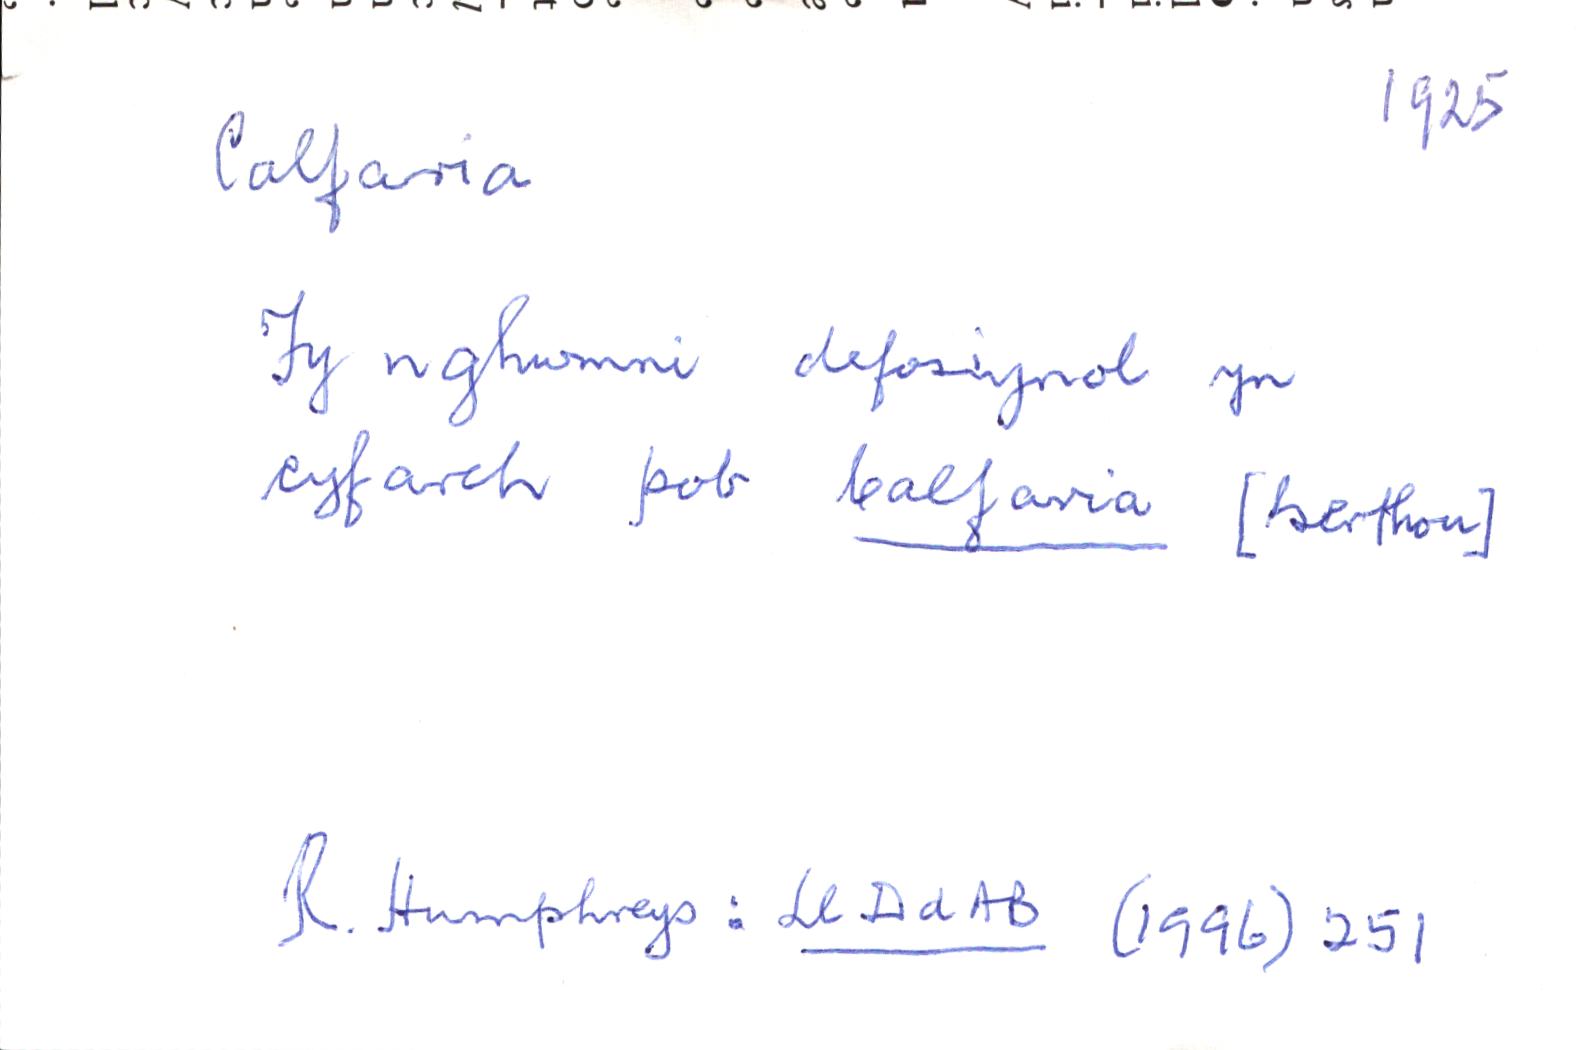 1925
Calfaria
Fy nghwmni defosiynol yn
cyfarch pob Calfaria [berthou]
R. Humphreys: Ll D d AB (1996) 251